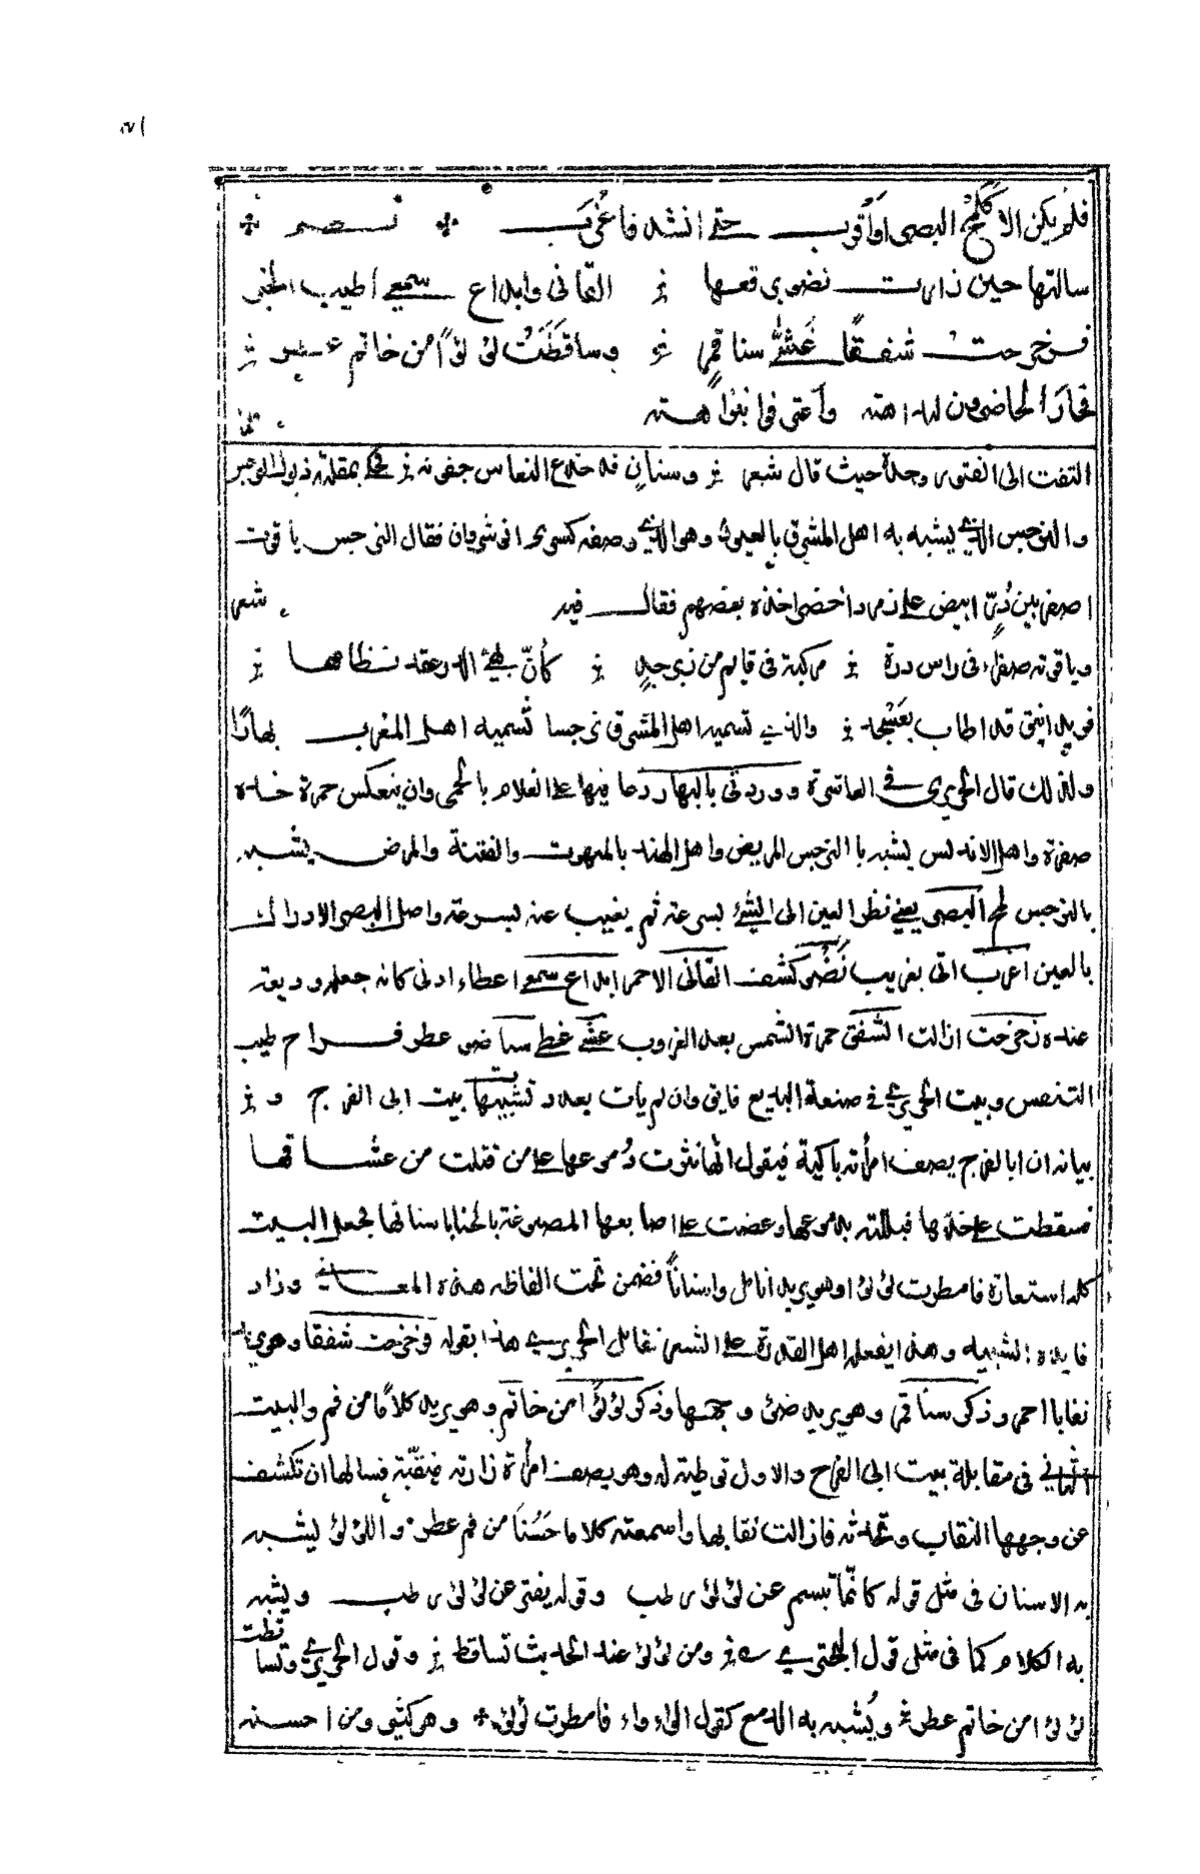 فلم يكن الا كلمح البصر او اقرب حتى انشد فاغرب شعر
سالتها حين زارت نضو برقعها القاني وايداع سمعي اطيب الخبر
فزحزحت شفقًا غشّى سنا قمر وساقطت لؤلؤًا من خاتم عطر
فحار الحاضرون لبداهته واعترفوا بنزاهته
التفت الى الفتور وجعله حيث قال شعر وسنان قد خدع النعاس جفونه فحكى بمقلته ذبول النرجس
والنرجس الذي يشبه به اهل المشرق بالعيون وهو الذي وصفه كسرى انوشروان فقال النرجس ياقوت
اصفر بين دُرّ ابيض على زمرد اخضر اخذه بعضهم فقال فيه شعر
وياقوتة صفراء في راس درة مركبة في قايم من زبرجد كأنّ بهيّ الدر عقد نظامها
فريد انيق قد اطاب بعسجد والذي تسميه اهل المشرق نرجسا تسميه اهل المغرب بهارًا
ولذلك قال الحريري في العاشرة ووردتي بالبهار دعا فيها على الغلام بالحمى وان ينعكس حمرة خده
صفرة واهل الاندلس يشبه بالنرجس المريض واهل الهند بالمبهوت والفتنة والمرض يشبه
بالنرجس لمح البصر يعني نظر العين الى الشئ بسرعة ثم يغيب عنه بسرعة واصل البصر الادراك
بالعين اغرب اتى بغريب نضو كشف القاني الاحمر ايداع سمعي اعطاء اذني كانه جعله وديعة
عنده زحزحت ازالت الشفق حمرة الشمس بعد الغروب غشّى غطى سنا ضوء عطر فراح طيب
التنفس وبيت الحريري في صنعة البديع فايق وان لم يأت بعدد تشبيهات بيت ابي الفرج و
بيانه ان ابا الفرج يصف امرأته باكية فيقول انها نثرت دموعها على من قتلت من عشاقها
فسقطت على خدها فبللته بدموعها وعضت على اصابعها المصبوغة بالحنا باسنانها فجعل البيت
كله استعارة فامطرت لؤلؤا وهو يريد انامل واسنانًا فضمن تحت الفاظه هذه المعاني وزاد
فايدة التشبيه وهذا يفعله اهل القدرة على الشعر فقابل الحريري هذا بقوله فزحزحت شفقا وهو يريد
نقابا احمر وذكر سنا قمر وهو يريد ضوء وجهها وذكر لؤلؤًا من خاتم وهو يريد كلامًا من فم والبيت
الثاني في مقابلة بيت ابي الفرج والاول توطية له وهو يصف امرأة زارته منقّبة فسالها ان تكشف
عن وجهها النقاب وتحدثه فازالت نقابها واسمعته كلاما حَسَنًا من فم عطر واللؤلؤ يشبه
به الاسنان في مثل قوله كانّما تبسم عن لؤلؤ رطب وقوله يفتر عن لؤلؤ رطب ويشبه
به الكلام كما في مثل قول البحتري ومن لؤلؤ عند الحديث تساقط وقول الحريري وتساقطت
لؤلؤا من خاتم عطر ويُشبه به الدمع كقول الواواء فامطرت لؤلؤ وهو كثير ومن احسنه